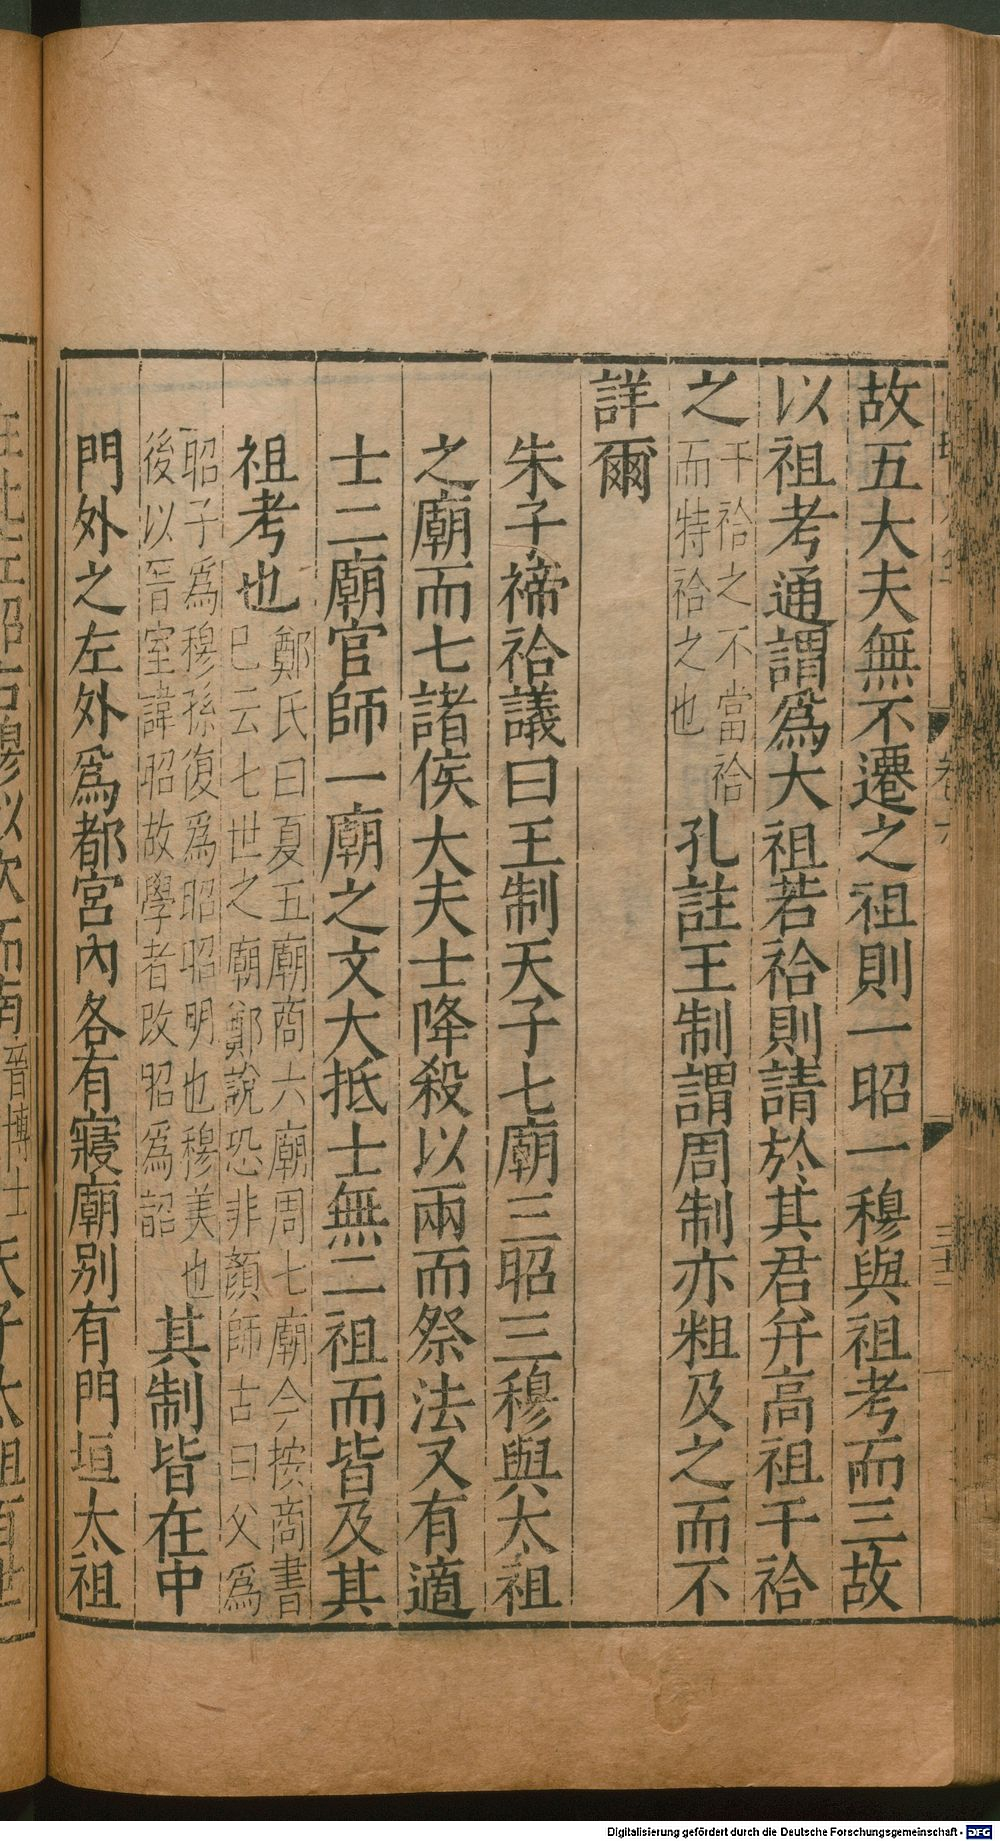 故五大夫無不遷之祖則一昭一穆與祖考而三故
以祖考通謂爲大祖若祫則請於其君弁高祖干祫
之干祫之不當祫而特祫之也孔註王制謂周制亦粗及之而不
詳爾
朱子禘祫議曰王制天子七廟三昭三穆與太祖
之廟而七諸侯大夫士降殺以兩而祭法又有適
士二廟官師一廟之文大抵士無二祖而皆及其
祖考也鄭氏曰夏五廟商六廟周七廟今按商書巳云七世之廟鄭說恐非顏師古曰父爲
昭子爲穆孫復爲昭昭明也穆美也後以晉室諱昭故學者改昭爲韶其制皆在中
門外之左外爲都宮內各有寢廟别有門垣太祖
卷六
晉博士
天子太祖百世
Digitalisierung gefördert durch die Deutsche Forschungsgemeinschaft - DFG